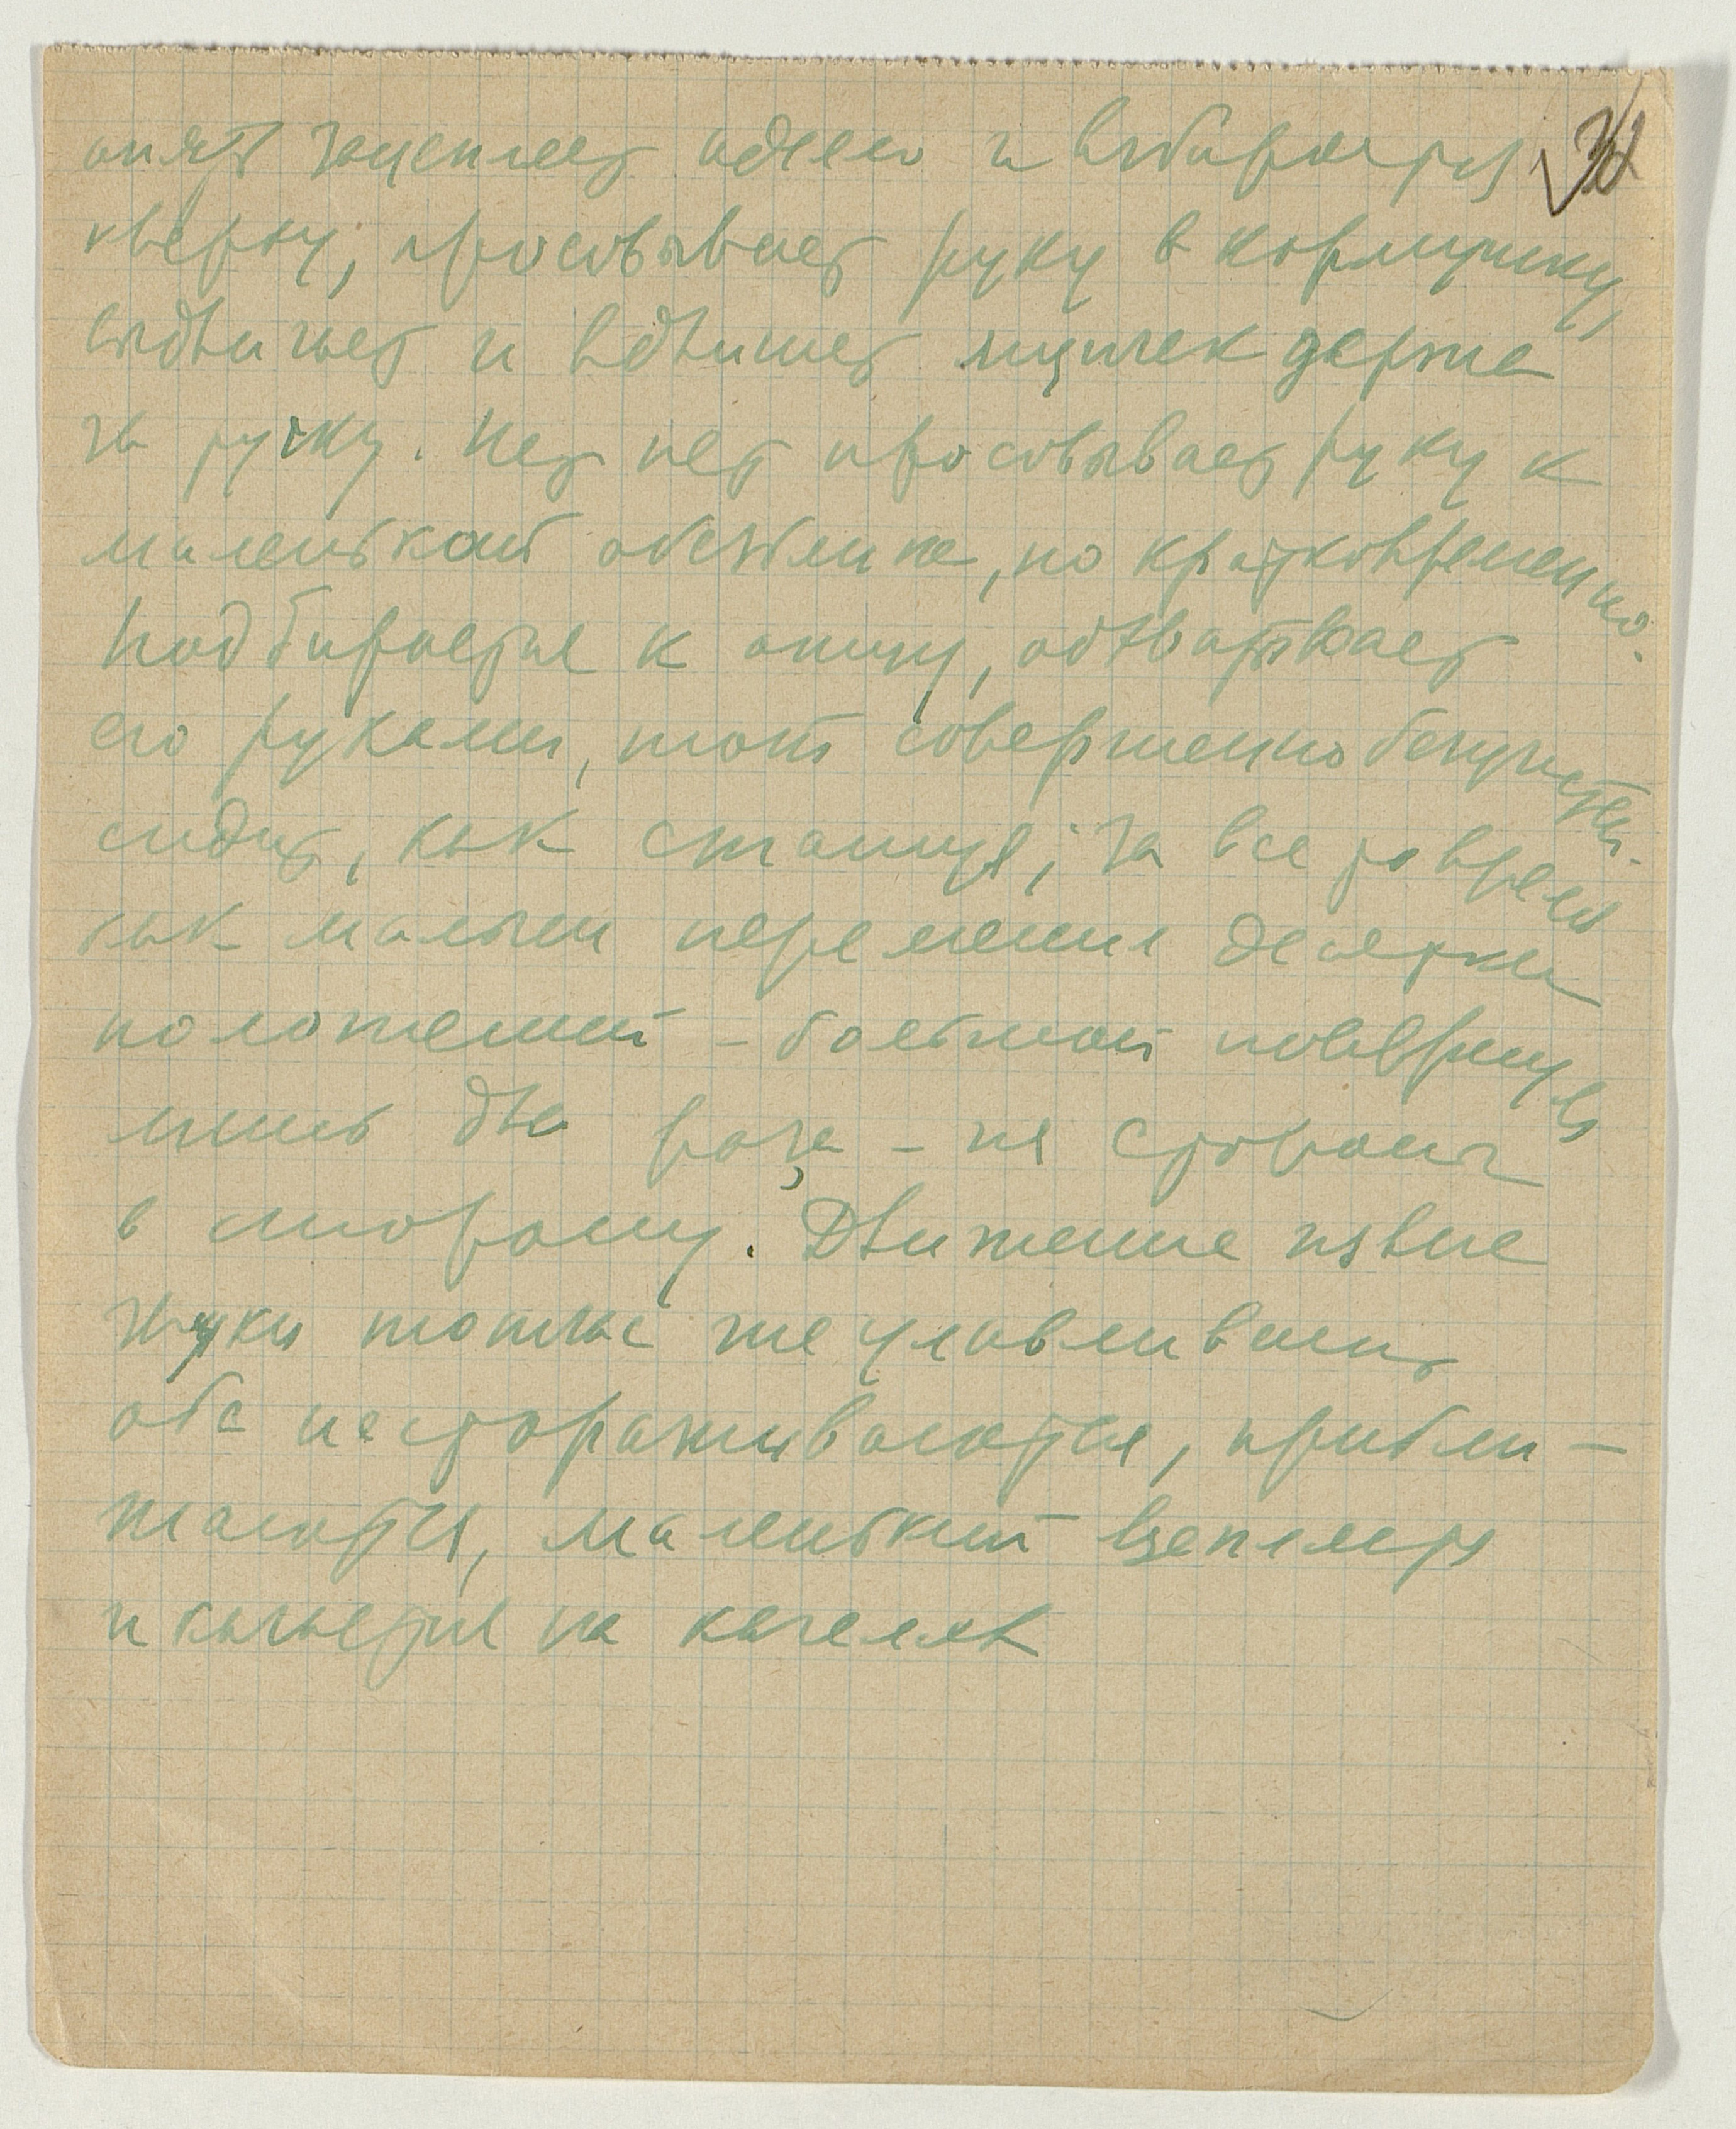 опять зацепляет одеяло и взбирается
кверху, просовывает руку в кормушку,
выдвигает и вдвигает ящичек держа
за ручку. Нет нет просовывает руку к
маленькой обезьянке, но кратковременно.
Подбирается к окну, обхватывает
его руками, тот совершенно безучастен.
сидит, как статуя; за все то время
как малыш переменил десятки
положений – большой повернулся
лишь два раза – из стороны
в сторону. Движение извне
звуки тотчас же улавливают
оба настораживаются, прибли-
жаются, маленький вцепляется
и качается на качелях